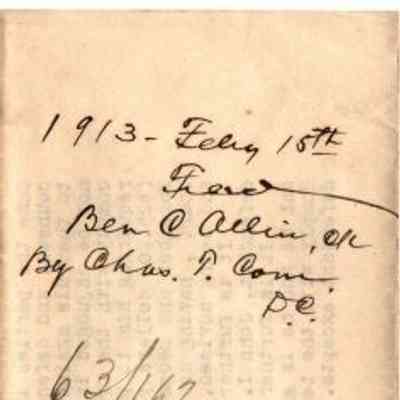 1913 - Feby 15th
Filed
Ben C Allin, clk
By Chas. T. Com.
D.C.
63/1167